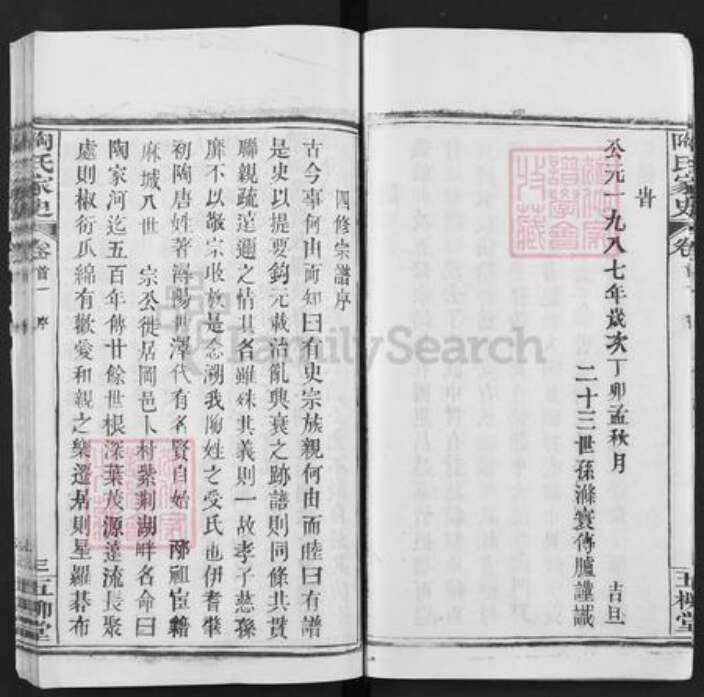 陶氏家史
卷
五柳堂
公元一九八七年歲次丁卯孟秋月 吉旦
二十三世孫滌寰傳臚謹識
四修宗譜序
古今事何由而知曰有史宗族親何由而睦曰有譜
是史以提要鈎元載治亂興衰之跡譜則同條共貫
聯親疏遠邇之情其名雖殊其義則一故孝子慈孫
靡不以敬宗收族是念溯我陶姓之受氏也伊耆肇
初陶唐姓著潯陽世澤代有名賢自始 祖宦籍
麻城八世 宗公徙居岡邑卜村紫荆湖畔名命曰
陶家河迄五百年傳廿餘世根深葉茂源遠流長聚
處則椒衍瓜綿有歡愛和親之樂遷居則星羅碁布
陶氏家史
卷首一 序
三五柳堂
FamilySearch